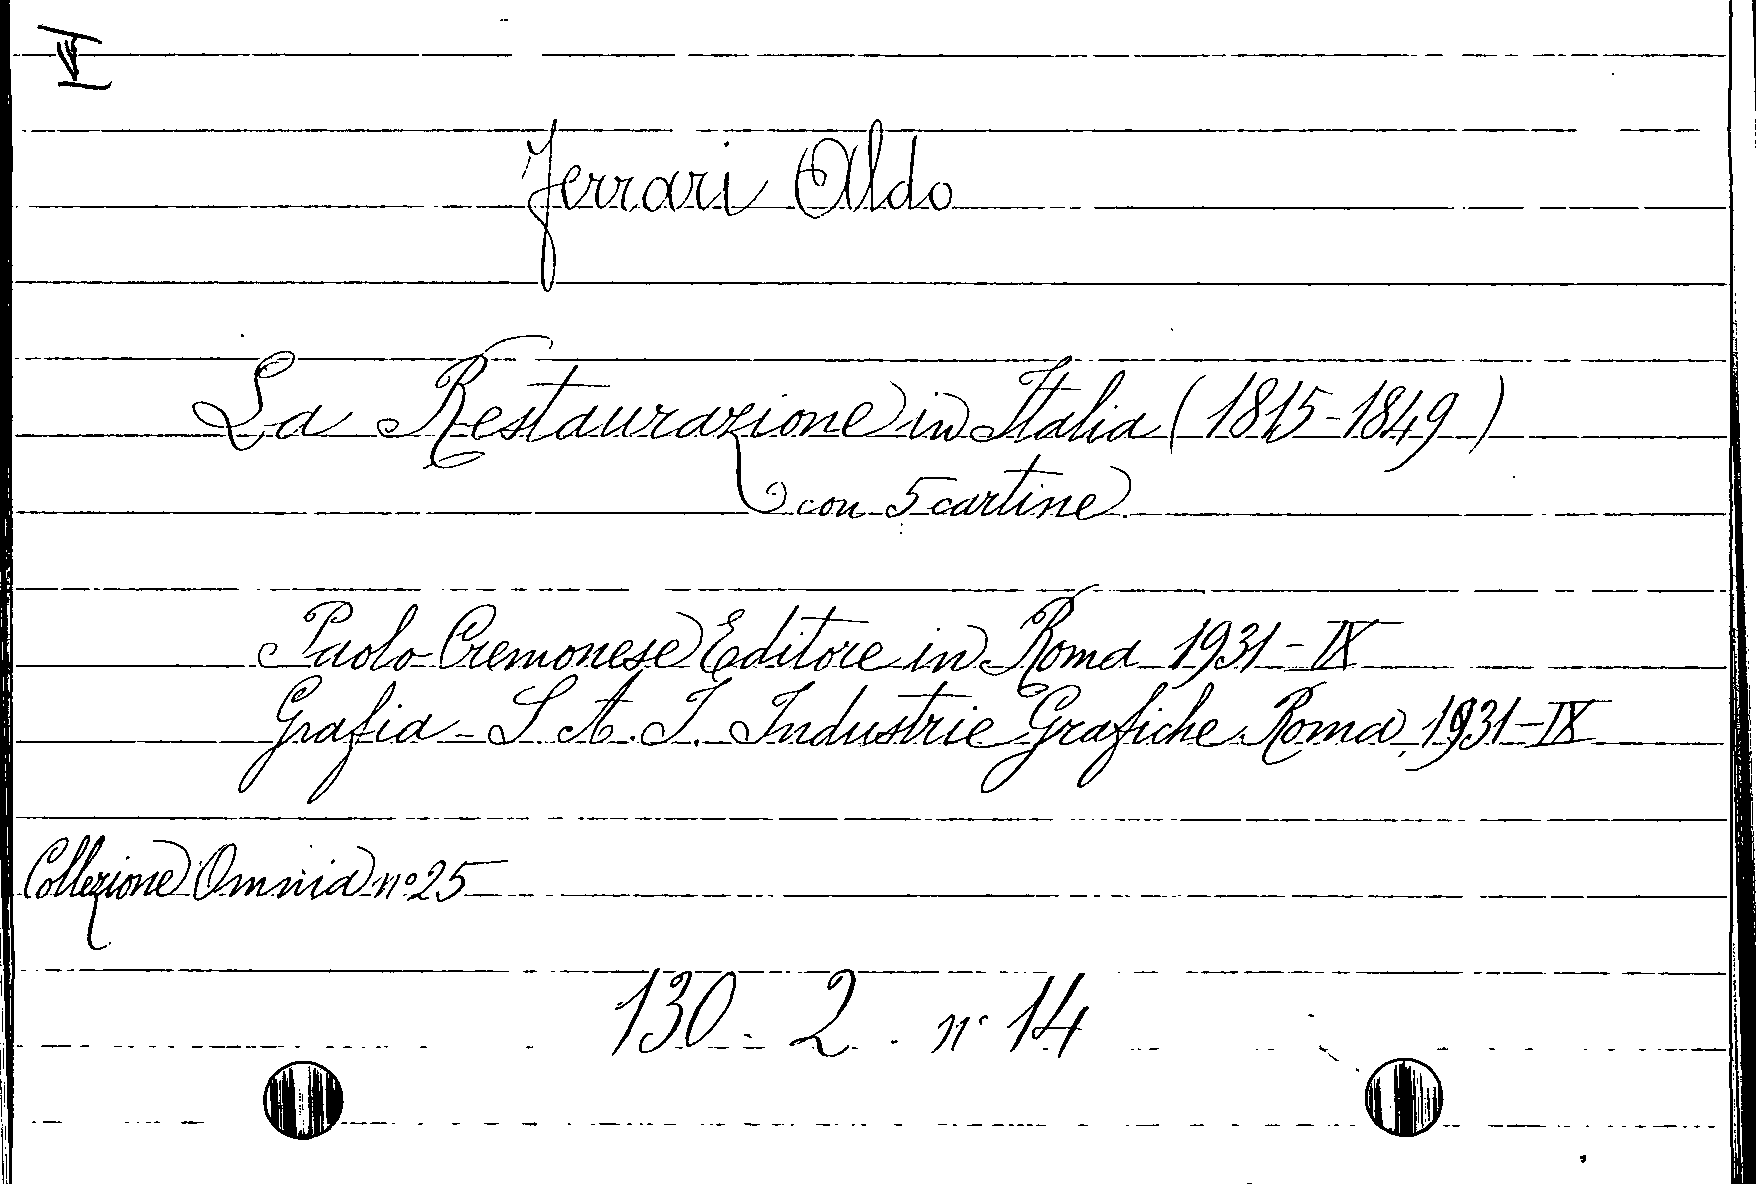 Ferrari Aldo
La Restaurazione in Italia (1815-1849)
con 5 cartine
Paolo Cremonese Editore in Roma 1931-IX
Grafia - S.A.I. Industrie Grafiche Roma, 1931-IX
Collezione Omnia nº 25
130 - 2 . nº 14